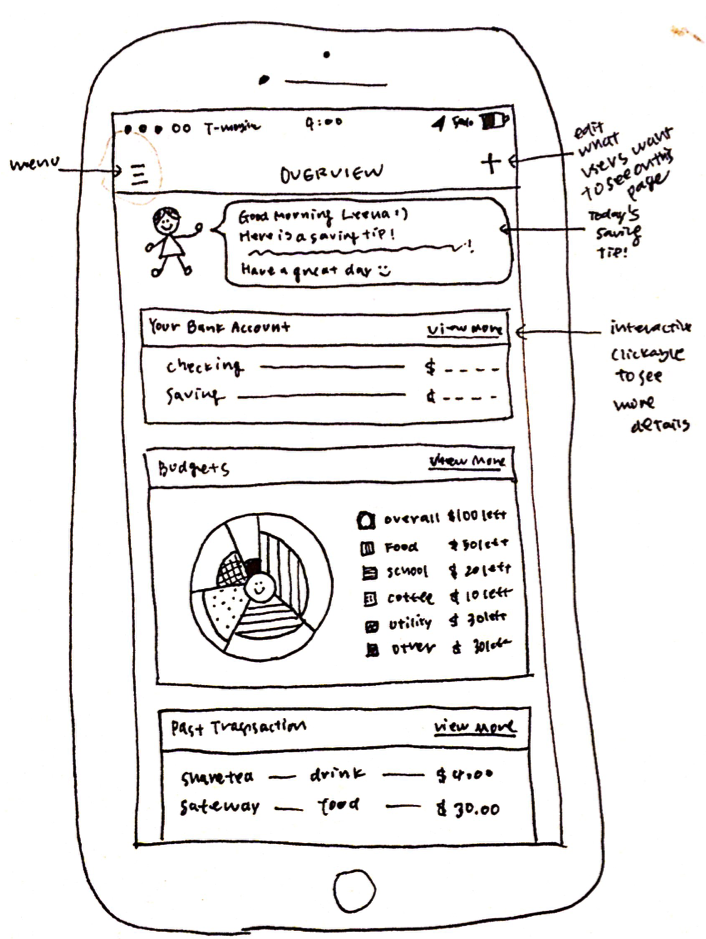 T-mobile 9:00 50%
menu
OVERVIEW
edit
what
users want
to see on this
page
Good Morning Leena :)
Here is a saving tip!
!
Have a great day
Today's
saving
tip!
Your Bank Account view more
checking $ ----
saving $ ----
interactive
clickable
to see
more
details
Budgets view more
overall $100 left
Food $50 left
school $20 left
coffee $10 left
utility $30left
other $30left
Past Transaction view more
sharetea — drink — $4.00
safeway — food — $30.00